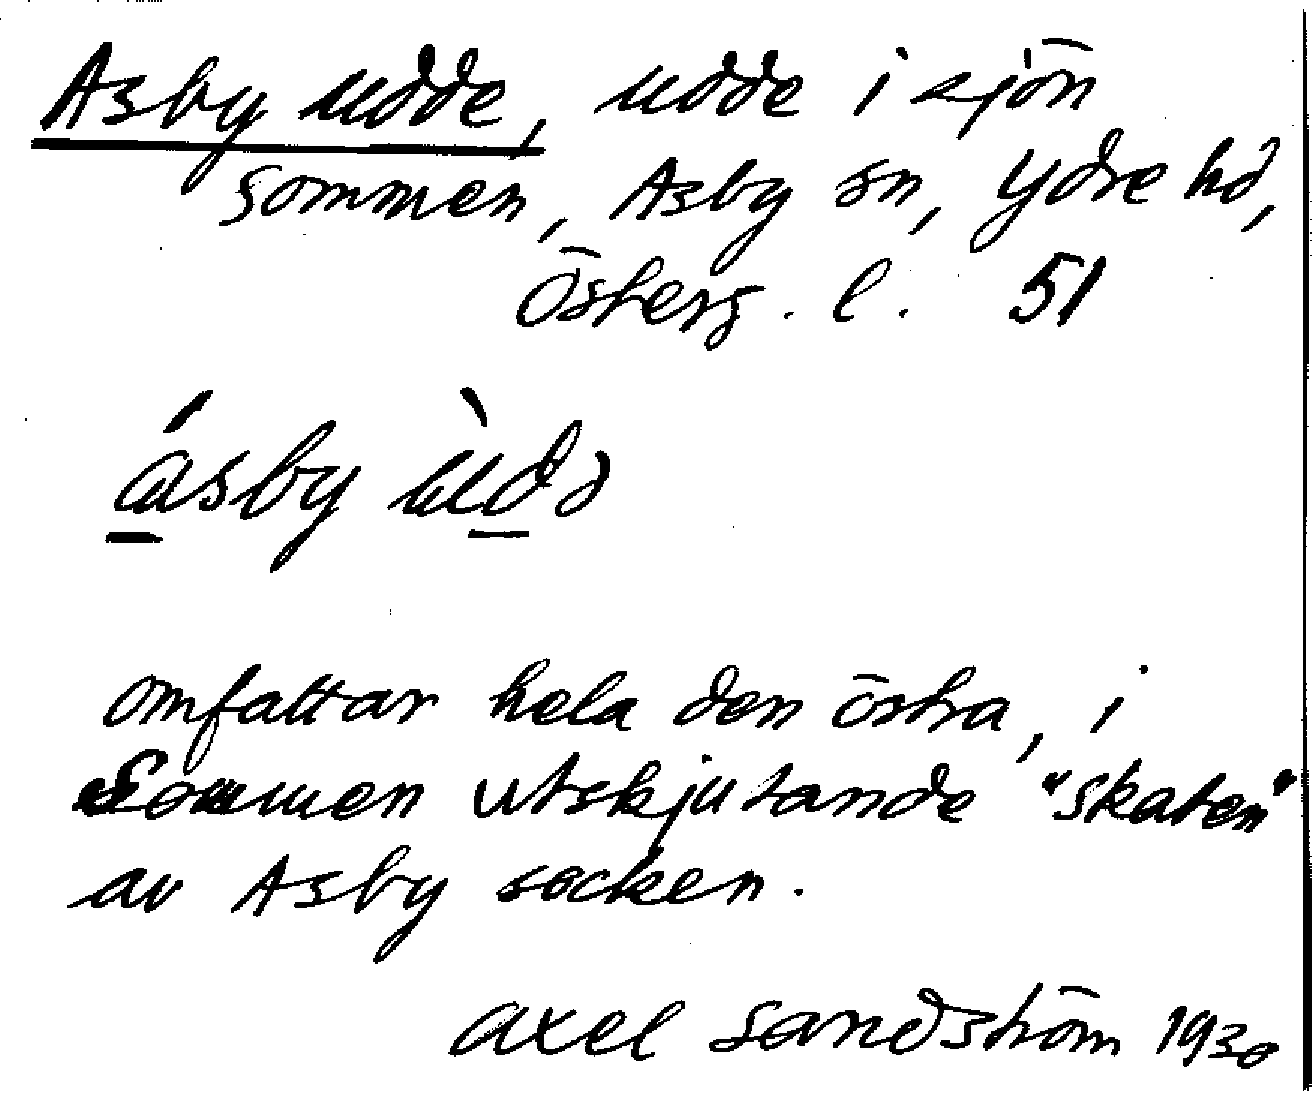 Asby udde, udde i sjön
Sommen, Asby sn, Ydre hd,
Österg. l. 51
ásby ùdə
omfattar hela den östra, i
Sommen utskjutande "skaten"
av Asby socken.
Axel Sandström 1930